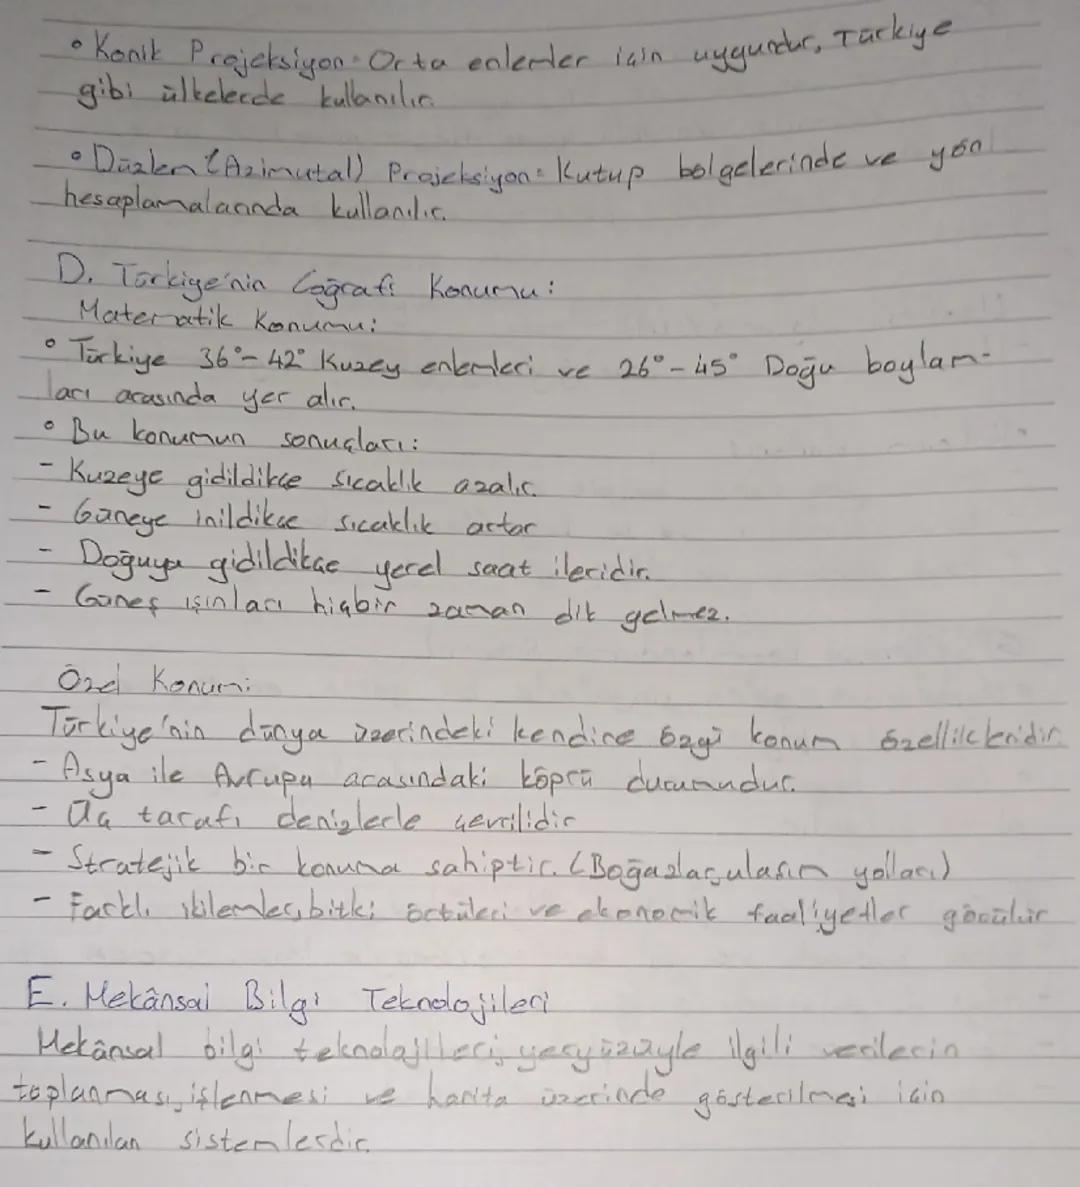 • Konik Projeksiyon: Orta enlemler için uygundur, Türkiye
gibi ülkelerde kullanılır.
• Düzlem (Azimutal) Projeksiyon: Kutup bölgelerinde ve yön
hesaplamalarında kullanılır.
D. Türkiye'nin Coğrafi Konumu:
Matematik Konumu:
• Türkiye 36°-42° Kuzey enlemleri ve 26°-45° Doğu boylam-
ları arasında yer alır.
• Bu konumun sonuçları:
- Kuzeye gidildikçe sıcaklık azalır.
- Güneye inildikçe sıcaklık artar
- Doğuya gidildikçe yerel saat ileridir.
- Güneş ışınları hiçbir zaman dik gelmez.
Özel Konum:
Türkiye'nin dünya üzerindeki kendine özgü konum özellikleridir
- Asya ile Avrupa arasındaki köprü durumundur.
- Üç tarafı denizlerle çevrilidir
- Stratejik bir konuma sahiptir. (Boğazlar, ulaşım yolları)
- Farklı iklimler, bitki örtüleri ve ekonomik faaliyetler görülür
E. Mekânsal Bilgi Teknolojileri
Mekânsal bilgi teknolojileri, yeryüzüyle ilgili verilerin
toplanması, işlenmesi ve harita üzerinde gösterilmesi için
kullanılan sistemlerdir.